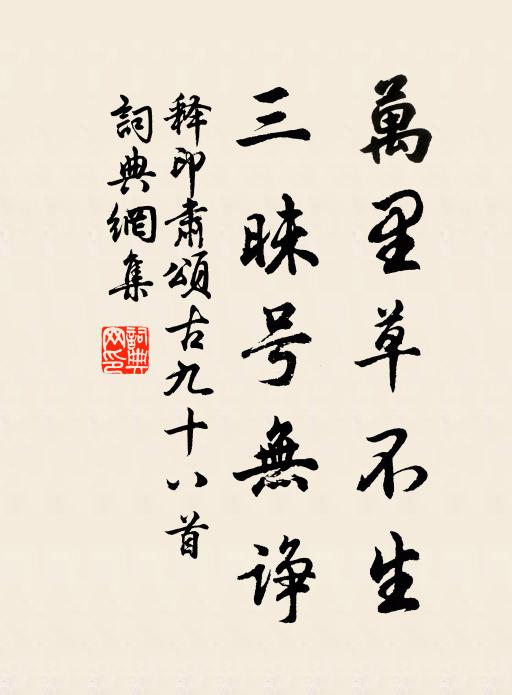 萬里草不生
三昧号無諍
释印肅頌古九十八首
詞典網集
詞典网印